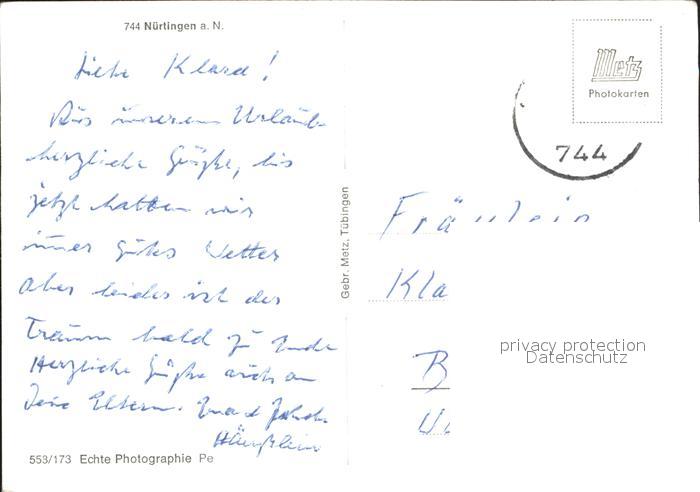 744 Nürtingen a. N.
Liebe Klara!
Aus unserem Urlaub
herzliche Grüße, bis
jetzt hatten wir
immer gutes Wetter
aber leider ist der
Traum bald zu Ende
Herzliche Grüße auch an
Deine Eltern.
553/173 Echte Photographie Pe
Gebr. Metz, Tübingen
Metz
Photokarten
744
Fräulein
Kla
B
privacy protection
Datenschutz